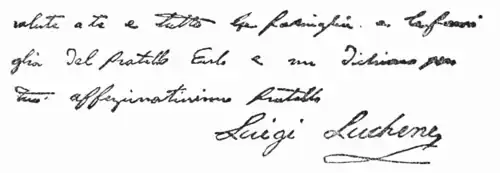 salute a te e tutto la famiglia e la fami
glia del fratello e un
tuo affezionatissimo fratello
Luigi Lucheni